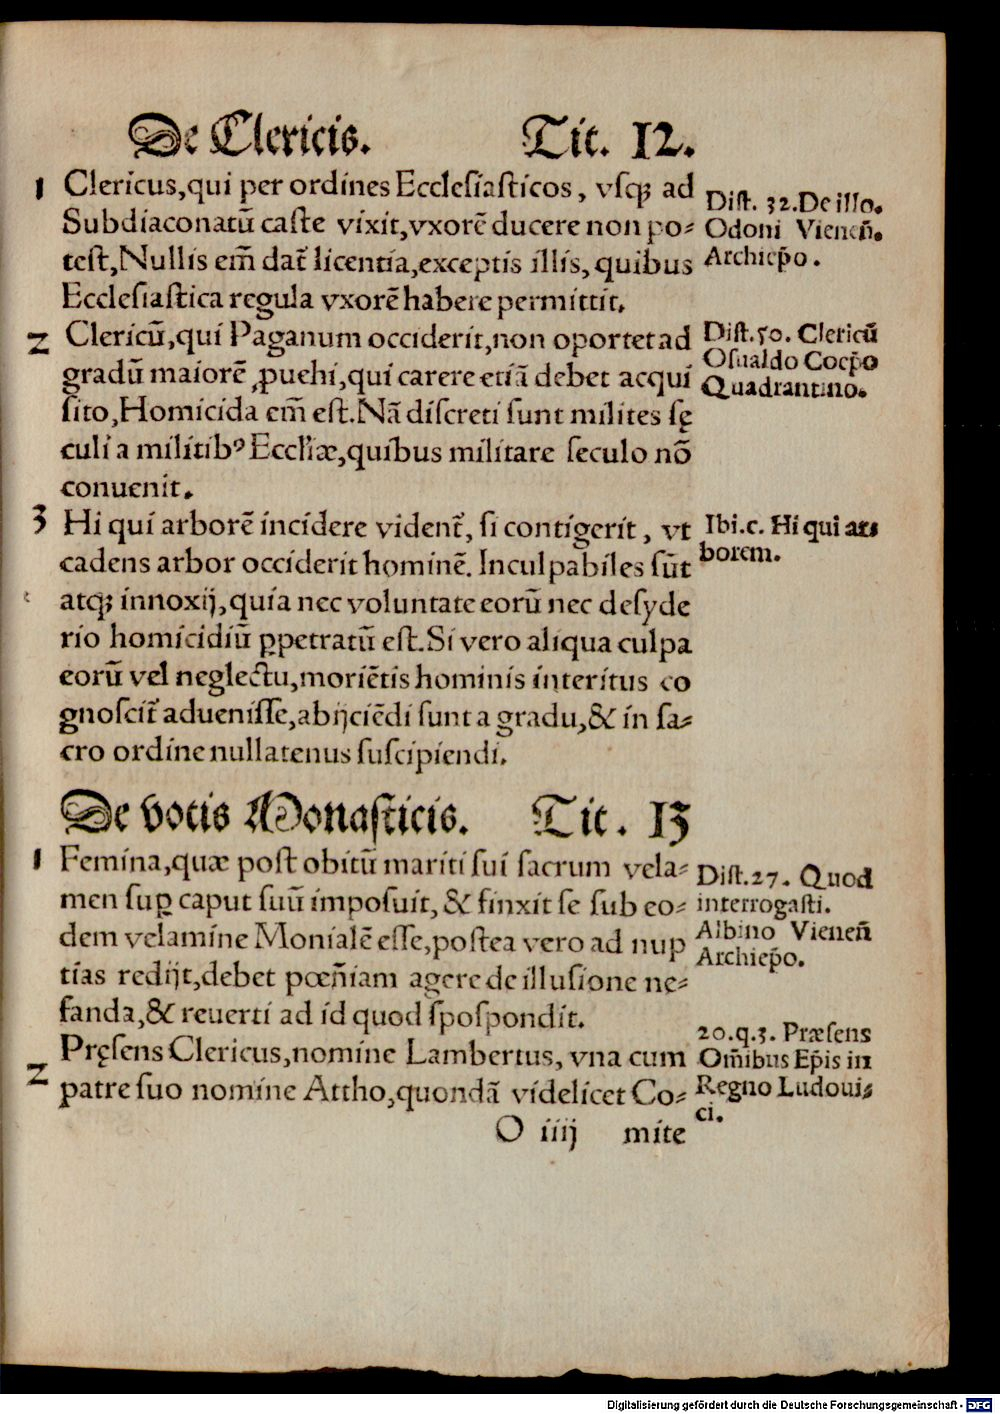 De Clericis. Tit. 12.
1 Clericus,qui per ordines Ecclesiasticos, vsqꝫ ad
Subdiaconatū caste vixit,vxorē ducere non po⸗
test,Nullis em̄ dat̄ licentia,exceptis illis,quibus
Ecclesiastica regula vxorē habere permittit.
Dist. 32.De illo.
Odoni Vienen̄.
Archiep̄o.
2 Clericū,qui Paganum occiderit,non oportet ad
gradū maiorē ꝓuehi,qui carere etiā debet acqui
sito,Homicida em̄ est.Nā discreti sunt milites sę
culi a militibꝰ Eccl'iæ,quibus militare seculo nō
conuenit.
Dist.50. Clericū
Osualdo Coep̄o
Quadrantino.
3 Hi qui arborē incidere vident̄, si contigerit, vt
cadens arbor occiderit hominē. Inculpabiles sūt
atqꝫ innoxij,quia nec voluntate eorū nec desyde
rio homicidiū ꝑpetratū est.Si vero aliqua culpa
eorū vel neglectu,moriētis hominis interitus co
gnoscit̄ aduenisse,abijciēdi sunt a gradu,& in sa⸗
cro ordine nullatenus suscipiendi.
Ibi.c. Hi qui ar⸗
borem.
De votis Monasticis. Tit. 13
1 Femina,quæ post obitū mariti sui sacrum vela⸗
men suꝑ caput suū imposuit, & finxit se sub eo⸗
dem velamine Monialē esse,postea vero ad nup
tias redijt,debet pœn̄iam agere de illusione ne⸗
fanda,& reuerti ad id quod spospondit.
Dist.27. Quod
interrogasti.
Albino Vienen̄
Archiep̄o.
2 Pręsens Clericus,nomine Lambertus, vna cum
patre suo nomine Attho,quondā videlicet Co⸗
20.q.3. Præsens
Om̄ibus Ep̄is in
Regno Ludoui⸗
ci.
O iiij mite
Digitalisierung gefördert durch die Deutsche Forschungsgemeinschaft - DFG